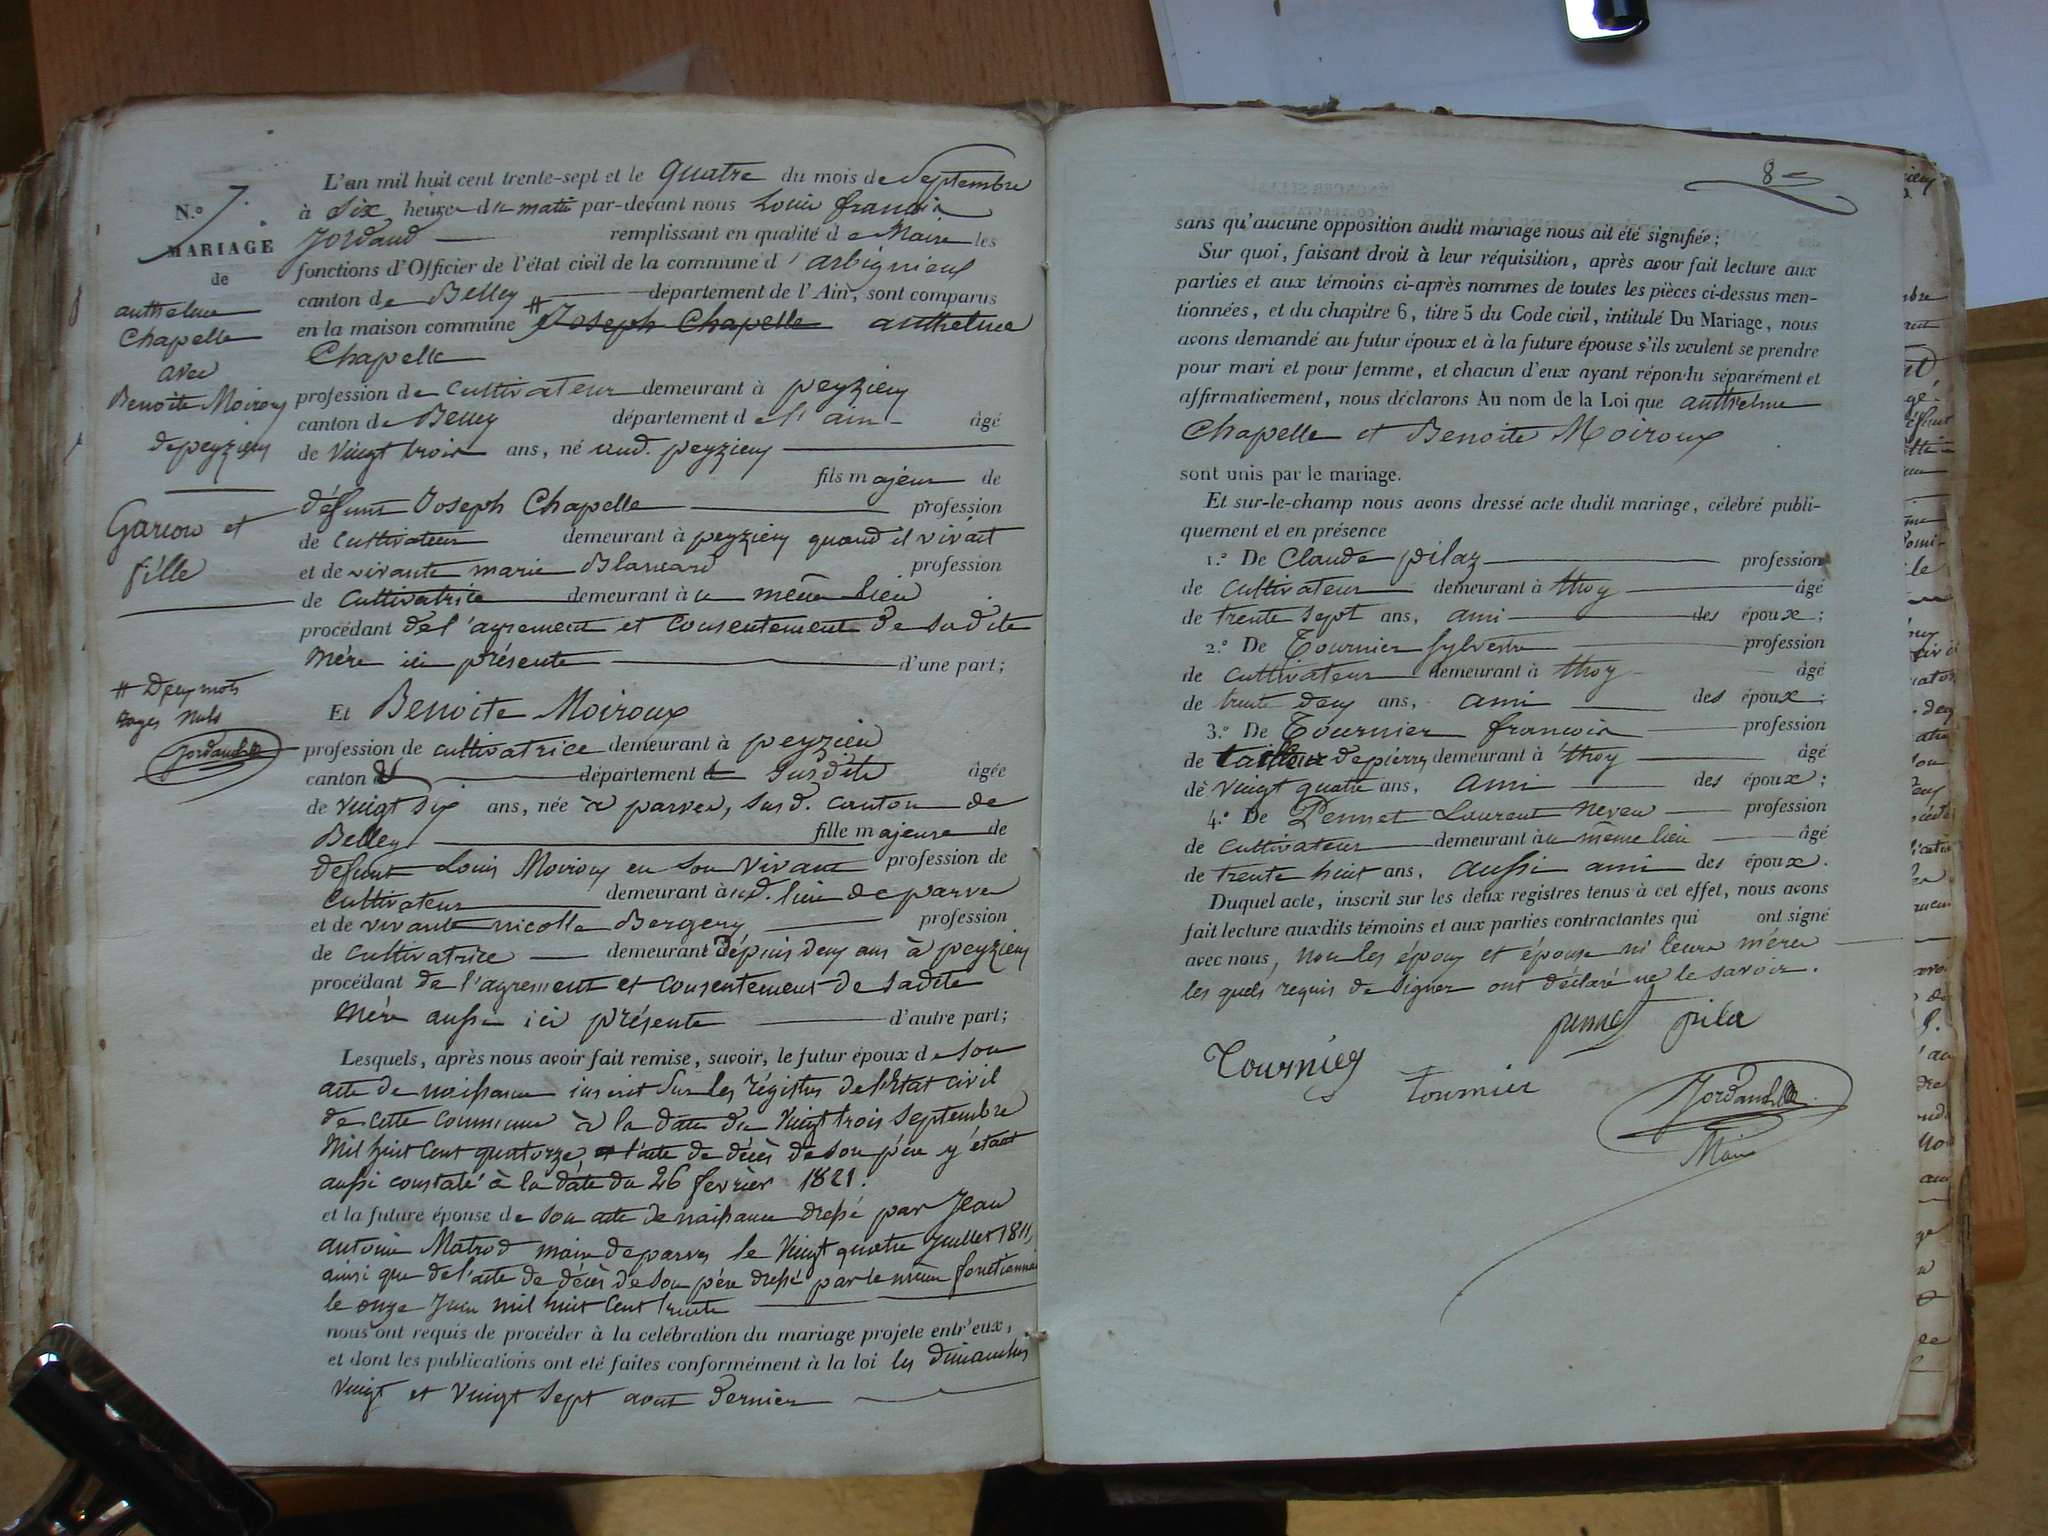 N.º 7.
MARIAGE
de
anthelme
Chapelle
avec
Benoite Moiroux
de peyzieu
Garcon et
fille
# Deux mots
rayés nuls
Jordand
L'an mil huit cent trente-sept et le quatre du mois de Septembre
à six heures du matin par-devant nous Louis francois
Jordand remplissant en qualité de Maire les
fonctions d'Officier de l'état civil de la commune d'arbignieux
canton de Belley département de l'Ain, sont comparus
en la maison commune # Joseph Chapelle anthelme
Chapelle
profession de cultivateur demeurant à peyzieu
canton de Belley département de l'ain âgé
de vingt trois ans, né aud. peyzieu
fils majeur de
défunt Joseph Chapelle profession
de cultivateur demeurant à peyzieu quand il vivait
et de vivante marie Blancard profession
de cultivatrice demeurant au même lieu
procédant de l'agrement et consentement de sadite
mére ici présente d'une part;
Et Benoite Moiroux
profession de cultivatrice demeurant à peyzieu
canton d département susdits âgée
de vingt six ans, née à parves, susd. canton de
Belley fille majeure de
défunt Louis Moiroux en son vivant profession de
cultivateur demeurant aud. lieu de parves
et de vivante nicolle Bergery profession
de cultivatrice demeurant depuis deux ans à peyzieu
procédant de l'agrement et consentement de sadite
Mére aussi ici présente d'autre part;
Lesquels, après nous avoir fait remise, savoir, le futur époux de son
acte de naissance inscrit sur les régistres de l'Etat civil
de cette commune à la date du vingt trois septembre
mil huit cent quatorze, l'acte de décès de son pére y étant
aussi constaté à la date du 26 février 1821.
et la future épouse de son acte de naissance dressé par Jean
antoine Matrod maire de parves le vingt quatre juillet 1811,
ainsi que de l'acte de décès de son pére dressé par le même fonctionnaire
le onze Juin mil huit cent trente
nous ont requis de procéder à la célébration du mariage projeté entr'eux,
et dont les publications ont été faites conformément à la loi les dimanches
vingt et vingt sept aout dernier
8
sans qu'aucune opposition audit mariage nous ait été signifiée;
Sur quoi, faisant droit à leur réquisition, après avoir fait lecture aux
parties et aux témoins ci-après nommés de toutes les pièces ci-dessus men-
tionnées, et du chapitre 6, titre 5 du Code civil, intitulé Du Mariage, nous
avons demandé au futur époux et à la future épouse s'ils veulent se prendre
pour mari et pour femme, et chacun d'eux ayant répondu séparément et
affirmativement, nous déclarons Au nom de la Loi que anthelme
Chapelle et Benoite Moiroux
sont unis par le mariage.
Et sur-le-champ nous avons dressé acte dudit mariage, célébré publi-
quement et en présence
1.º De Claude pilaz profession
de cultivateur demeurant à thoy âgé
de trente sept ans, ami des époux;
2.º De Tournier Sylvestre profession
de cultivateur demeurant à thoy âgé
de trente deux ans, ami des époux;
3.º De Tournier francois profession
de tailleur de pierres demeurant à thoy âgé
de vingt quatre ans, ami des époux;
4.º De Pennet Laurent neveu profession
de cultivateur demeurant au même lieu âgé
de trente huit ans, aussi ami des époux.
Duquel acte, inscrit sur les deux registres tenus à cet effet, nous avons
fait lecture auxdits témoins et aux parties contractantes qui ont signé
avec nous, non les époux et épouse ni leurs méres
les quels requis de signer ont déclaré ne le savoir.
pennet pila
Tournier
tournier
Jordand
Maire